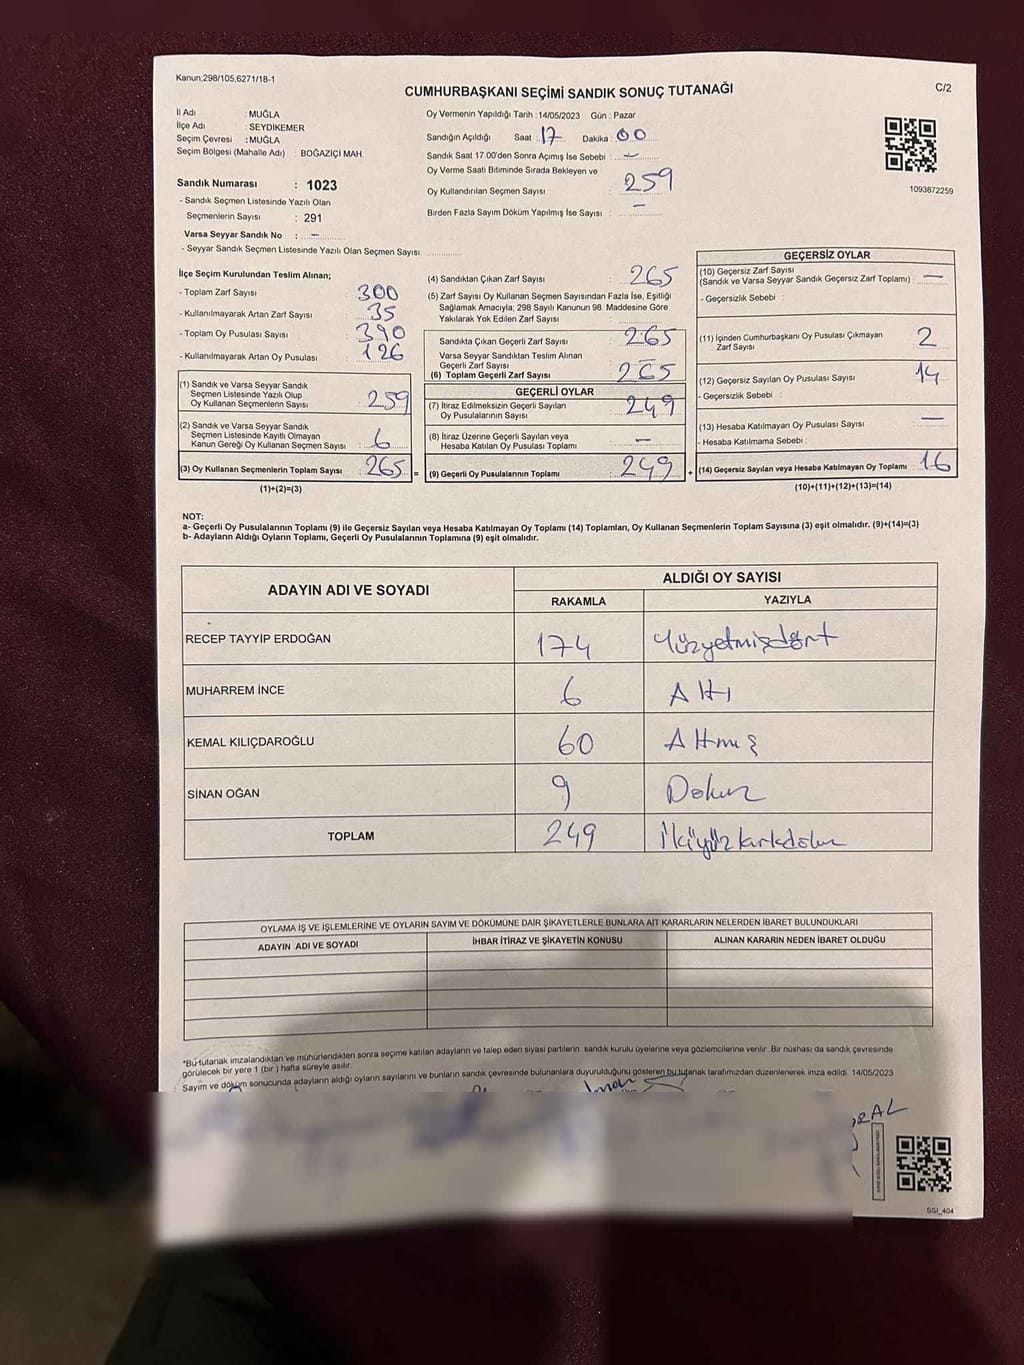 Kanun;298/105;6271/18-1
CUMHURBAŞKANI SEÇİMİ SANDIK SONUÇ TUTANAĞI
C/2
İl Adı : MUĞLA
İlçe Adı : SEYDİKEMER
Seçim Çevresi : MUĞLA
Seçim Bölgesi (Mahalle Adı) : BOĞAZİÇİ MAH.
Sandık Numarası : 1023
- Sandık Seçmen Listesinde Yazılı Olan
Seçmenlerin Sayısı : 291
Varsa Seyyar Sandık No : -
- Seyyar Sandık Seçmen Listesinde Yazılı Olan Seçmen Sayısı:
Oy Vermenin Yapıldığı Tarih : 14/05/2023 Gün : Pazar
Sandığın Açıldığı Saat 17 Dakika : 00
Sandık Saat 17:00'den Sonra Açımış İse Sebebi : -
Oy Verme Saati Bitiminde Sırada Bekleyen ve
Oy Kullandırılan Seçmen Sayısı : 259
Birden Fazla Sayım Döküm Yapılmış İse Sayısı : -
1093872259
İlçe Seçim Kurulundan Teslim Alınan;
- Toplam Zarf Sayısı : 300
- Kullanılmayarak Artan Zarf Sayısı : 35
- Toplam Oy Pusulası Sayısı : 390
- Kullanılmayarak Artan Oy Pusulası : 126
(1) Sandık ve Varsa Seyyar Sandık
Seçmen Listesinde Yazılı Olup
Oy Kullanan Seçmenlerin Sayısı : 259
(2) Sandık ve Varsa Seyyar Sandık
Seçmen Listesinde Kayıtlı Olmayan
Kanun Gereği Oy Kullanan Seçmen Sayısı : 6
(3) Oy Kullanan Seçmenlerin Toplam Sayısı : 265 =
(1)+(2)=(3)
(4) Sandıktan Çıkan Zarf Sayısı : 265
(5) Zarf Sayısı Oy Kullanan Seçmen Sayısından Fazla İse, Eşitliği
Sağlamak Amacıyla; 298 Sayılı Kanunun 98. Maddesine Göre
Yakılarak Yok Edilen Zarf Sayısı :
Sandıkta Çıkan Geçerli Zarf Sayısı : 265
Varsa Seyyar Sandıktan Teslim Alınan
Geçerli Zarf Sayısı :
(6) Toplam Geçerli Zarf Sayısı : 265
GEÇERLİ OYLAR
(7) İtiraz Edilmeksizin Geçerli Sayılan
Oy Pusulalarının Sayısı : 249
(8) İtiraz Üzerine Geçerli Sayılan veya
Hesaba Katılan Oy Pusulası Toplamı : -
(9) Geçerli Oy Pusulalarının Toplamı : 249 +
GEÇERSİZ OYLAR
(10) Geçersiz Zarf Sayısı
(Sandık ve Varsa Seyyar Sandık Geçersiz Zarf Toplamı) : -
- Geçersizlik Sebebi :
(11) İçinden Cumhurbaşkanı Oy Pusulası Çıkmayan
Zarf Sayısı : 2
(12) Geçersiz Sayılan Oy Pusulası Sayısı : 14
- Geçersizlik Sebebi :
(13) Hesaba Katılmayan Oy Pusulası Sayısı : -
- Hesaba Katılmama Sebebi :
(14) Geçersiz Sayılan veya Hesaba Katılmayan Oy Toplamı : 16
(10)+(11)+(12)+(13)=(14)
NOT:
a- Geçerli Oy Pusulalarının Toplamı (9) ile Geçersiz Sayılan veya Hesaba Katılmayan Oy Toplamı (14) Toplamları, Oy Kullanan Seçmenlerin Toplam Sayısına (3) eşit olmalıdır. (9)+(14)=(3)
b- Adayların Aldığı Oyların Toplamı, Geçerli Oy Pusulalarının Toplamına (9) eşit olmalıdır.
ADAYIN ADI VE SOYADI
ALDIĞI OY SAYISI
RAKAMLA YAZIYLA
RECEP TAYYİP ERDOĞAN 174 Yüzyetmişdört
MUHARREM İNCE 6 Altı
KEMAL KILIÇDAROĞLU 60 Altmış
SİNAN OĞAN 9 Dokuz
TOPLAM 249 İkiyüzkırkdokuz
OYLAMA İŞ VE İŞLEMLERİNE VE OYLARIN SAYIM VE DÖKÜMÜNE DAİR ŞİKAYETLERLE BUNLARA AİT KARARLARIN NELERDEN İBARET BULUNDUKLARI
ADAYIN ADI VE SOYADI İHBAR İTİRAZ VE ŞİKAYETİN KONUSU ALINAN KARARIN NEDEN İBARET OLDUĞU
*Bu tutanak imzalandıktan ve mühürlendikten sonra seçime katılan adayların ve talep eden siyasi partilerin sandık kurulu üyelerine veya gözlemcilerine verilir. Bir nüshası da sandık çevresinde
görülecek bir yere 1 (bir) hafta süreyle asılır.
Sayım ve döküm sonucunda adayların aldığı oyların sayılarını ve bunların sandık çevresinde bulunanlara duyurulduğunu gösteren bu tutanak tarafımızdan düzenlenerek imza edildi. 14/05/2023
SSI_404